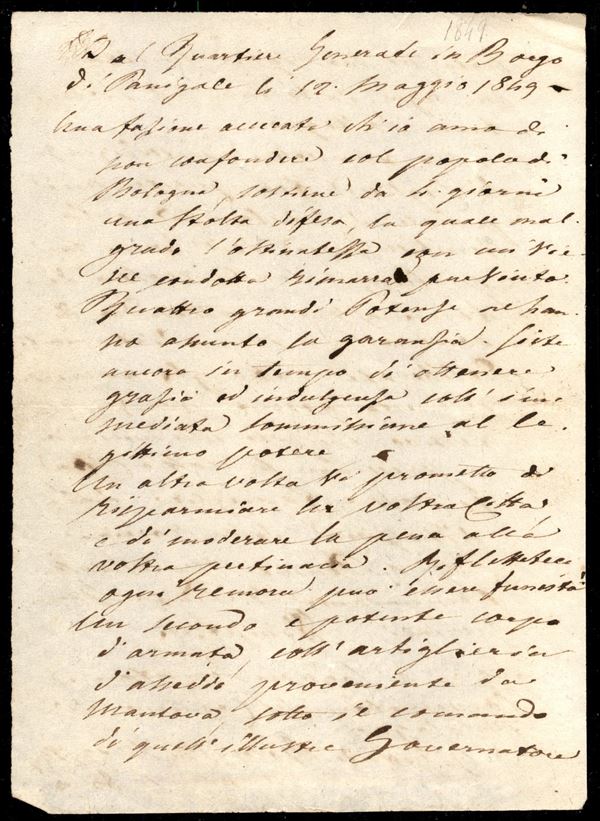 1849
Dal Quartiere Generale in Borgo
di Panigale li 12. Maggio 1849
Una fazione accecata ch'io amo di
non confondere col popolo di
Bologna, sostiene da 4. giorni
una stolta difesa, la quale mal-
grado l'ostinatezza con cui vie-
ne condotta rimarrà pur vinta.
Quattro grandi Potenze ne han-
no assunto la garanzia. Siete
ancora in tempo di ottenere
grazia ed indulgenza coll' im-
mediata sommissione al le-
gittimo potere
Un altra volta vi prometto di
risparmiare la vostra Città
e di moderare la pena alla
vostra pertinacia. Riflettete
ogni remora può essere funesta
Un secondo e potente corpo
d'armata, coll' artiglieria
d'assedio proveniente da
Mantova, sotto il comando
di quell' illustre Governatore